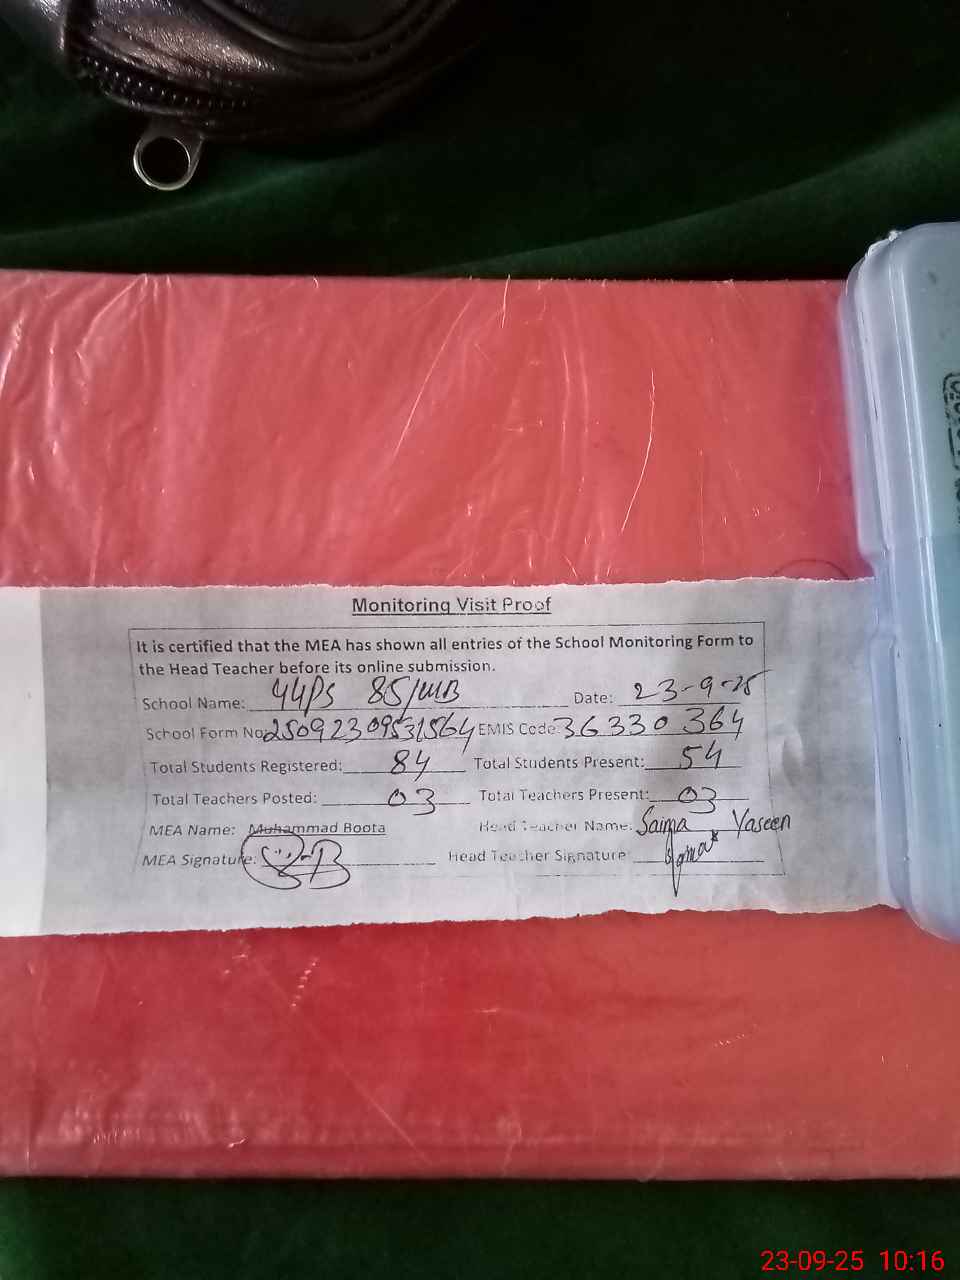 Monitoring Visit Proof
It is certified that the MEA has shown all entries of the School Monitoring Form to
the Head Teacher before its online submission.
School Name: GGPS 85/MB Date: 23-9-25
School Form No: 25092309531564 EMIS Code: 36330364
Total Students Registered: 84 Total Students Present: 54
Total Teachers Posted: 03 Total Teachers Present: 03
MEA Name: Muhammad Boota Head Teacher Name: Saima Yaseen
MEA Signature: Head Teacher Signature:
23-09-25 10:16